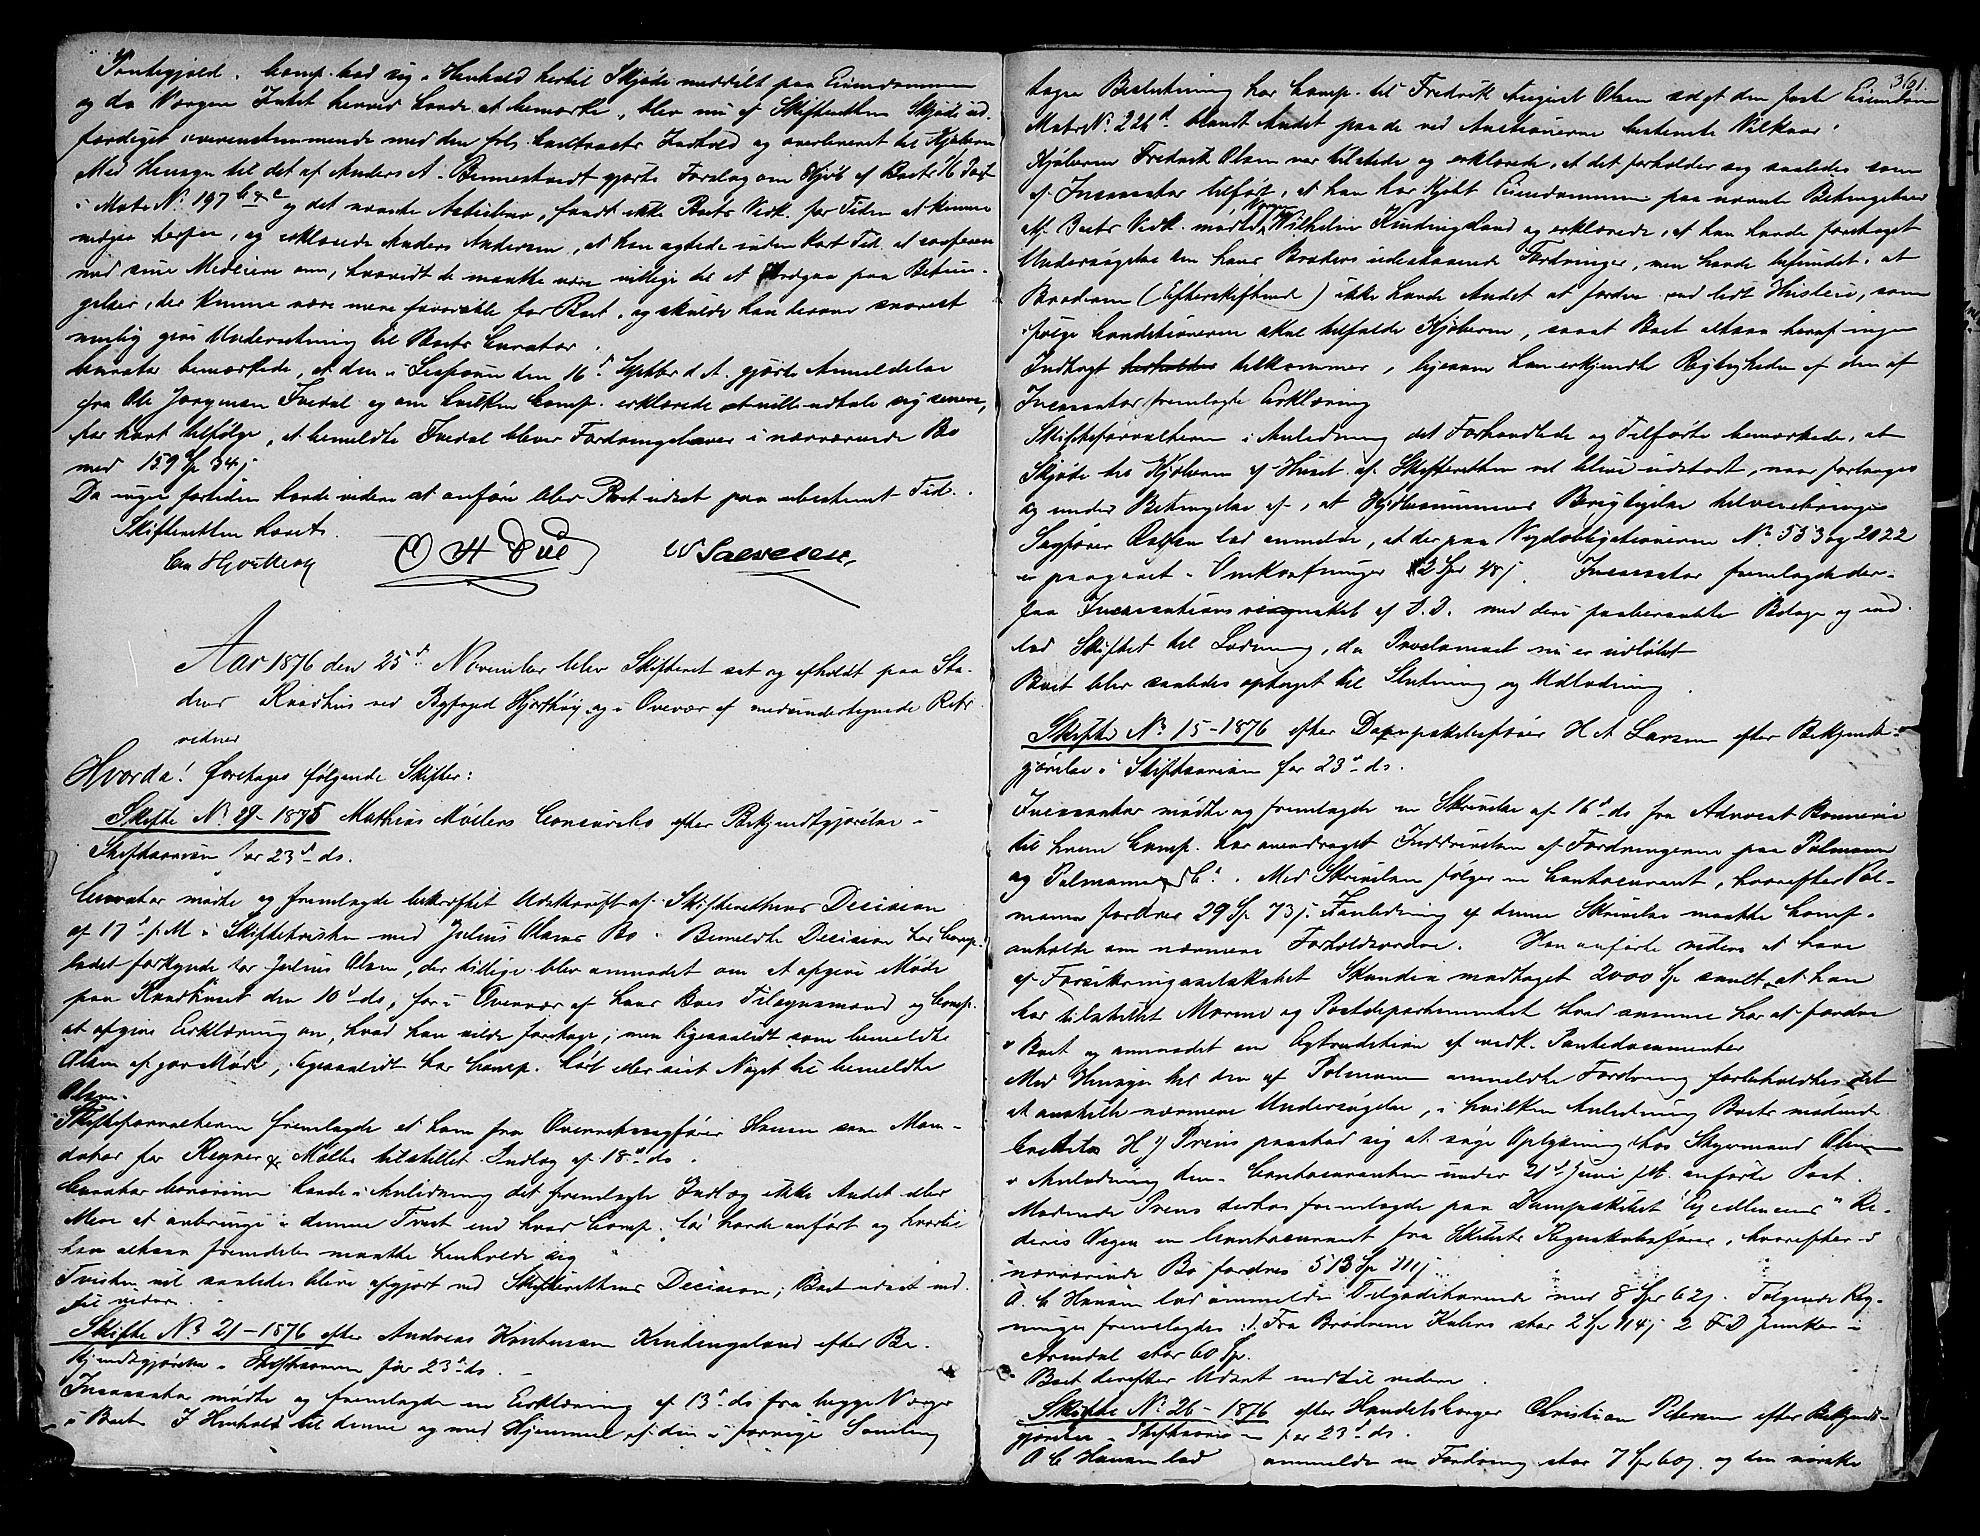 Pantegjeld. Comp. bad sig i Henhold hertil Skjøde meddelt paa Eiendommen
og da Vergen Intet herved havde at bemærke, blev nu af Skifteretten Skjøde ud-
færdiget overensstemmende med den Contracts Indhold og overleveret til Kjøberen
Med Hensyn til det af Anders A. gjorte Forslag om Kjøb af Boets
i Matr N: 197 b & c og det norske fandt ikke Boets Vedk. for Tiden at kunne
indgaa herpaa, og erklærede Anders Andersen, at han agtede inden kort Tid at conferere
med sine Medeiere om, hvorvidt de maatte være villige til at indgaa paa Betin-
gelser, der kunne være mere favorable for Boet, og skulde han derom snarest
mulig give Underretning til Boets Curator.
Curator bemærkede, at den i Sessionen den 16d Septbr d.A. gjorte Anmeldelse
fra Ole Jørgensen Tvedal og om hvilken Comp. erklærede at ville udtale sig senere,
har havt tilfølge, at bemeldte Tvedal bliver Fordringshaver i nærværende Bo
med 159 Sp 34 s
Da ingen fortiden havde videre at anføre blev Boet udsat paa ubestemt Tid.
Skifteretten hævet.
Chr Hjorthøy O H Due W Soevesen
Aar 1876 den 25d November blev Skifteret sat og afholdt paa Sta-
dens Raadhus ved Byfoged Hjorthøy og i Overvær af medundertegnede Rets-
vidner
Hvorda! foretoges følgende Skifter:
Skifte No 29 - 1875 Mathias Møllers Concursbo efter Bekjendtgjørelse i
Stiftsavisen for 23d ds.
Curator mødte og fremlagde bekræftet Udskrift af Skifterettens Decision
af 17d f.M i Skiftetvisten med Julius Olsens Bo. Bemeldte Decision har Comp.
ladet forkynde for Julius Olsen, der tillige blev anmodet om at afgive Møde
paa Raadhuset den 10d ds, for i Overvær af hans Boes Tilsynsmænd og Comp.
at afgive Erklæring om, hvad han vilde foretage; men ligesaalidt som bemeldte
Olsen afgav Møde, ligesaalidt har Comp. hørt eller seet Noget til bemeldte
Olsen.
Skifteforvalteren fremlagde et ham fra Overretssagfører Hansen som Man-
datar for Regner & Møller tilstillet Indlæg af 18d ds.
Curator bonorum havde i Anledning det fremlagte Indlæg ikke Andet eller
Mere at anbringe i denne Tvist end hvad Comp. før havde anført og hvortil
han altsaa fremdeles maatte henholde sig
Tvisten vil saaledes blive afgjort ved Skifterettens Decision; Boet udsat ind-
til videre.
Skifte No 21 - 1876 efter Andreas Knutsen Kindingsland efter Be-
kjendtgjørelse i Stiftsavisen for 23d ds.
Incassator mødte og fremlagde en Erklæring af 13d ds fra begge Værger
i Boet. I Henhold til denne og med Hjemmel af den i forrige Samling
361.
tagne Beslutning har Comp. til Fredrik August Olsen solgt den faste Eiendom
Matr No 226d blandt Andet paa de ved Auctionerne bestemte Vilkaar.
Kjøberen Fredrik Olsen var tilstede og erklærede, at det forholder sig saaledes som
af Incassator tilført, at han har kjøbt Eiendommen paa nævnte Betingelser
Af Boets Vedk. mødte Værge Wilhelm Kindingsland og erklærede, at han havde foretaget
Undersøgelse om hans Broders udestaaende Fordringer, men havde befundet, at
Broderen (Efterskifteren) ikke havde Andet at fordre end lidt Husleie, som
ifølge Conditionerne skal tilfalde Kjøberen, saaat Boet altsaa heraf ingen
Indtægt tilkommer, ligesom han erkjendte Rigtigheden af den af
Incassator fremlagte Erklæring
Skifteforvalteren i Anledning det Forhandlede og Tilførte bemærkede, at
Skjøde til Kjøberen af Huset af Skifteretten vil blive udstedt, naar forlanges
og under Betingelse af, at Kjøbesummens Berigtigelse tilveiebringes
Sagfører lod anmelde, at der paa Nydobligationerne No 553 og 2022
er paagaaet i Omkostninger 2 Sp 48 s. Incassator fremlagde der-
paa Incassationsregnskab af D.D. med deri paaberaabte Bilage og ind-
lod Skiftet til Lodning, da Proclamaet nu er udløbet
Boet blev saaledes optaget til Slutning og Udlodning.
Skifte No 15 - 1876 efter Dampskibsfører H A Larsen efter Bekjendt-
gjørelse i Stiftsavisen for 23d ds.
Incassator mødte og fremlagde en Skrivelse af 16d ds fra Advocat Bonnevie
til hvem Comp. har overdraget Inddrivelsen af Fordringerne paa Polmann
og Polmann & Co. Med Skrivelsen følger en Contocourant, hvorefter Pol-
mann fordrer 29 Sp 73 s. I Anledning af denne Skrivelse maatte Comp.
anholde om nærmere Forholdsordre. Han anførte videre at have
af Forsikringsselskabet Skandia modtaget 2000 Sp samt at han
har tilstillet Marine og Postdepartementet hvad samme har at fordre
i Boet og anmodet om Extradition af vedk. Pantedocumenter
Med Hensyn til den af Polmann anmeldte Fordring forbeholdtes det
at anstille nærmere Undersøgelse, i hvilken Anledning Boets mødende
Creditor H J Preus paatog sig at søge Oplysning hos Styrmand Olsen
i Anledning den i Contocouranten under 21d Juni f.A. anførte Post.
Mødende Preus derhos fremlagde paa Dampskibet "Excellencens" Re-
deris Vegne en Contocourant fra Skibets Regnskabsfører, hvorefter i
nærværende Bo fordres 513 Sp 111 s
A. C Hansen lod anmelde Tilgodehavende med 8 Sp 62 s. Følgende Reg-
ninger fremlagdes: 1. Fra Brødrene stor 2 Sp 114 s 2 F D i
Arendal stor 60 Sp.
Boet derefter Udsat indtil videre.
Skifte No 26 - 1876 efter Handelsborger Christian Petersen efter Bekjendt-
gjørelse i Stiftsavisen for 23d ds.
A C Hansen lod anmelde en Fordring stor 7 Sp 60 s. og den norske